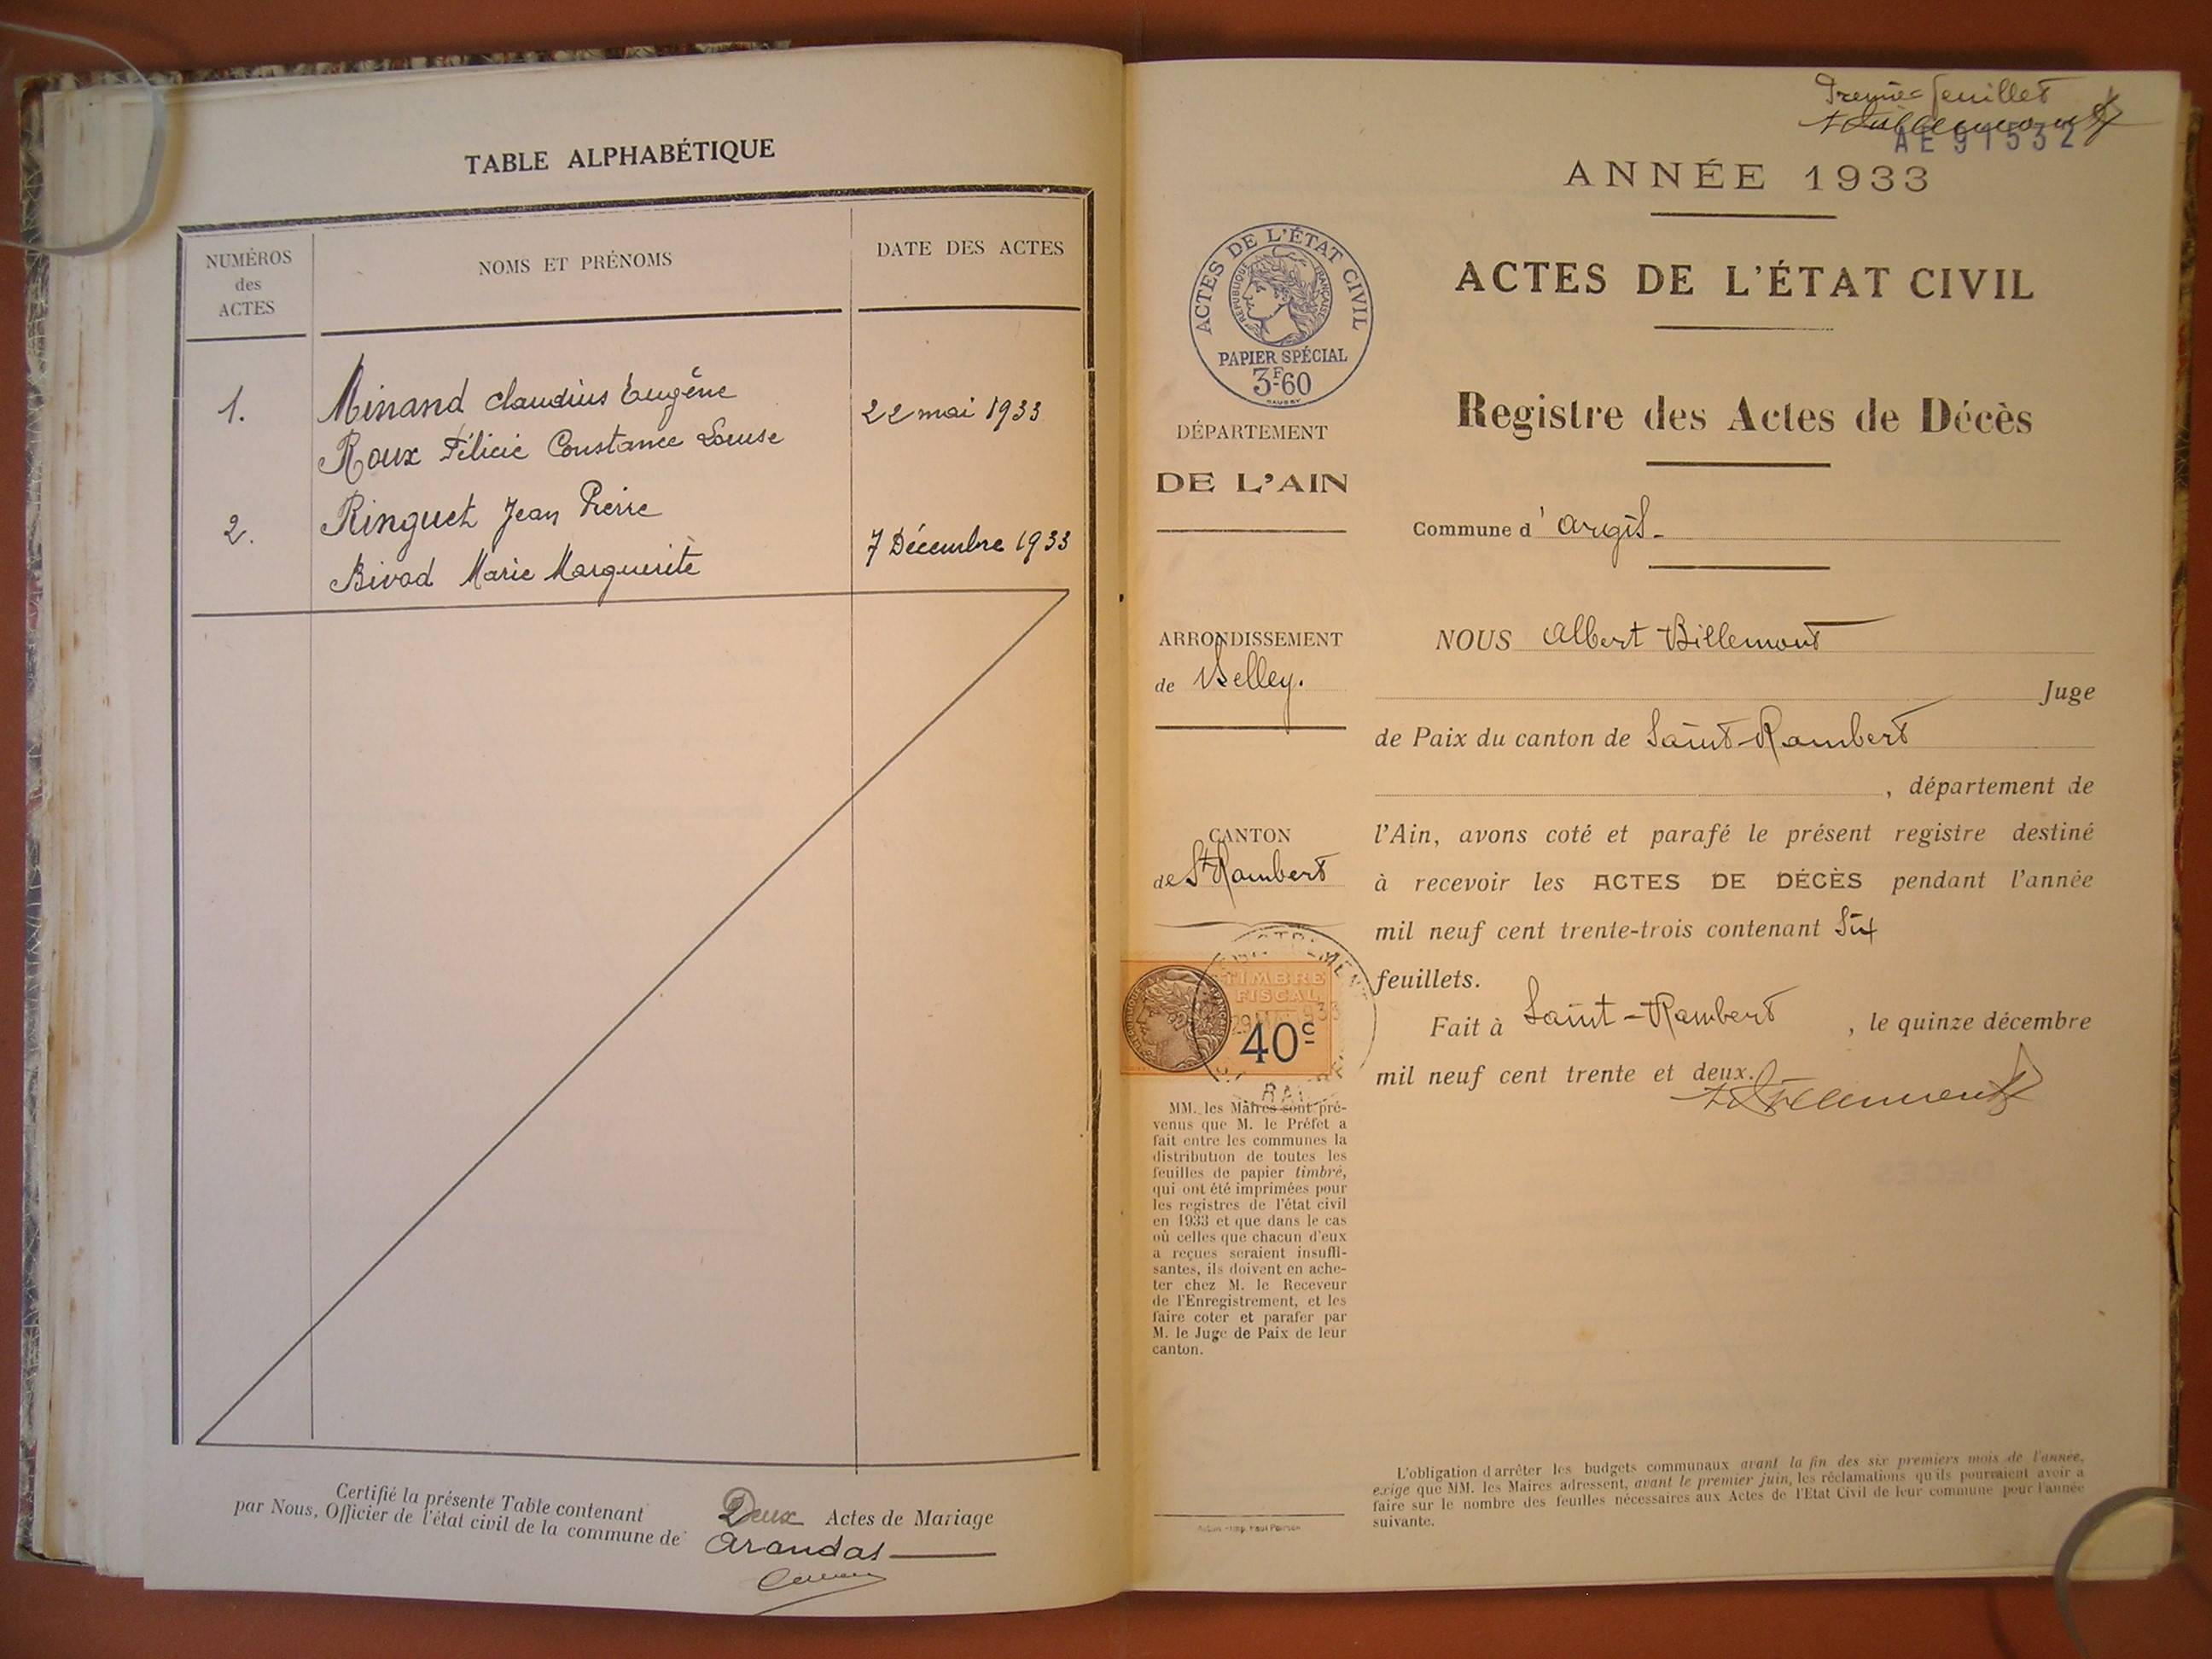 TABLE ALPHABÉTIQUE
NUMÉROS
des
ACTES
NOMS ET PRÉNOMS
DATE DES ACTES
1.
Minand Claudius Eugène
22 mai 1933
Roux Félicie Constance Louise
2.
Ringuet Jean Pierre
7 Décembre 1933
Bivod Marie Marguerite
Certifié la présente Table contenant Deux Actes de Mariage
par Nous, Officier de l'état civil de la commune de Arandas
Premier feuillet
AE 91532
ANNÉE 1933
ACTES DE L'ÉTAT CIVIL
RÉPUBLIQUE FRANÇAISE
PAPIER SPÉCIAL
3F60
ACTES DE L'ÉTAT CIVIL
Registre des Actes de Décès
DÉPARTEMENT
DE L'AIN
Commune d'Argis
ARRONDISSEMENT
de Belley.
CANTON
de St Rambert
NOUS Albert Billemont
Juge
de Paix du canton de Saint-Rambert
, département de
l'Ain, avons coté et parafé le présent registre destiné
à recevoir les ACTES DE DÉCÈS pendant l'année
mil neuf cent trente-trois contenant Six
feuillets.
Fait à Saint-Rambert, le quinze décembre
mil neuf cent trente et deux.
TIMBRE
FISCAL
40c
MM. les Maires sont pré-
venus que M. le Préfet a
fait entre les communes la
distribution de toutes les
feuilles de papier timbré,
qui ont été imprimées pour
les registres de l'état civil
en 1933 et que dans le cas
où celles que chacun d'eux
a reçues seraient insuffi-
santes, ils doivent en ache-
ter chez M. le Receveur
de l'Enregistrement, et les
faire coter et parafer par
M. le Juge de Paix de leur
canton.
L'obligation d'arrêter les budgets communaux avant la fin des six premiers mois de l'année,
exige que MM. les Maires adressent, avant le premier juin, les réclamations qu'ils pourraient avoir a
faire sur le nombre des feuilles nécessaires aux Actes de l'Etat Civil de leur commune pour l'année
suivante.